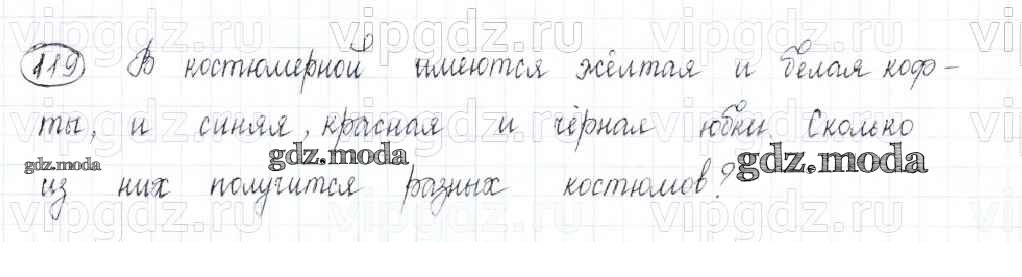 119 В костюмерной имеются жёлтая и белая коф-
ты, и синяя, красная и чёрная юбки. Сколько
из них получится разных костюмов?
vipgdz.ru vipgdz.ru vipgdz.ru vipg
vipgdz.ru vipgdz.ru vipgdz.ru vipg
gdz.moda gdz.moda gdz.moda
vipgdz.ru vipgdz.ru vipgdz.ru vip